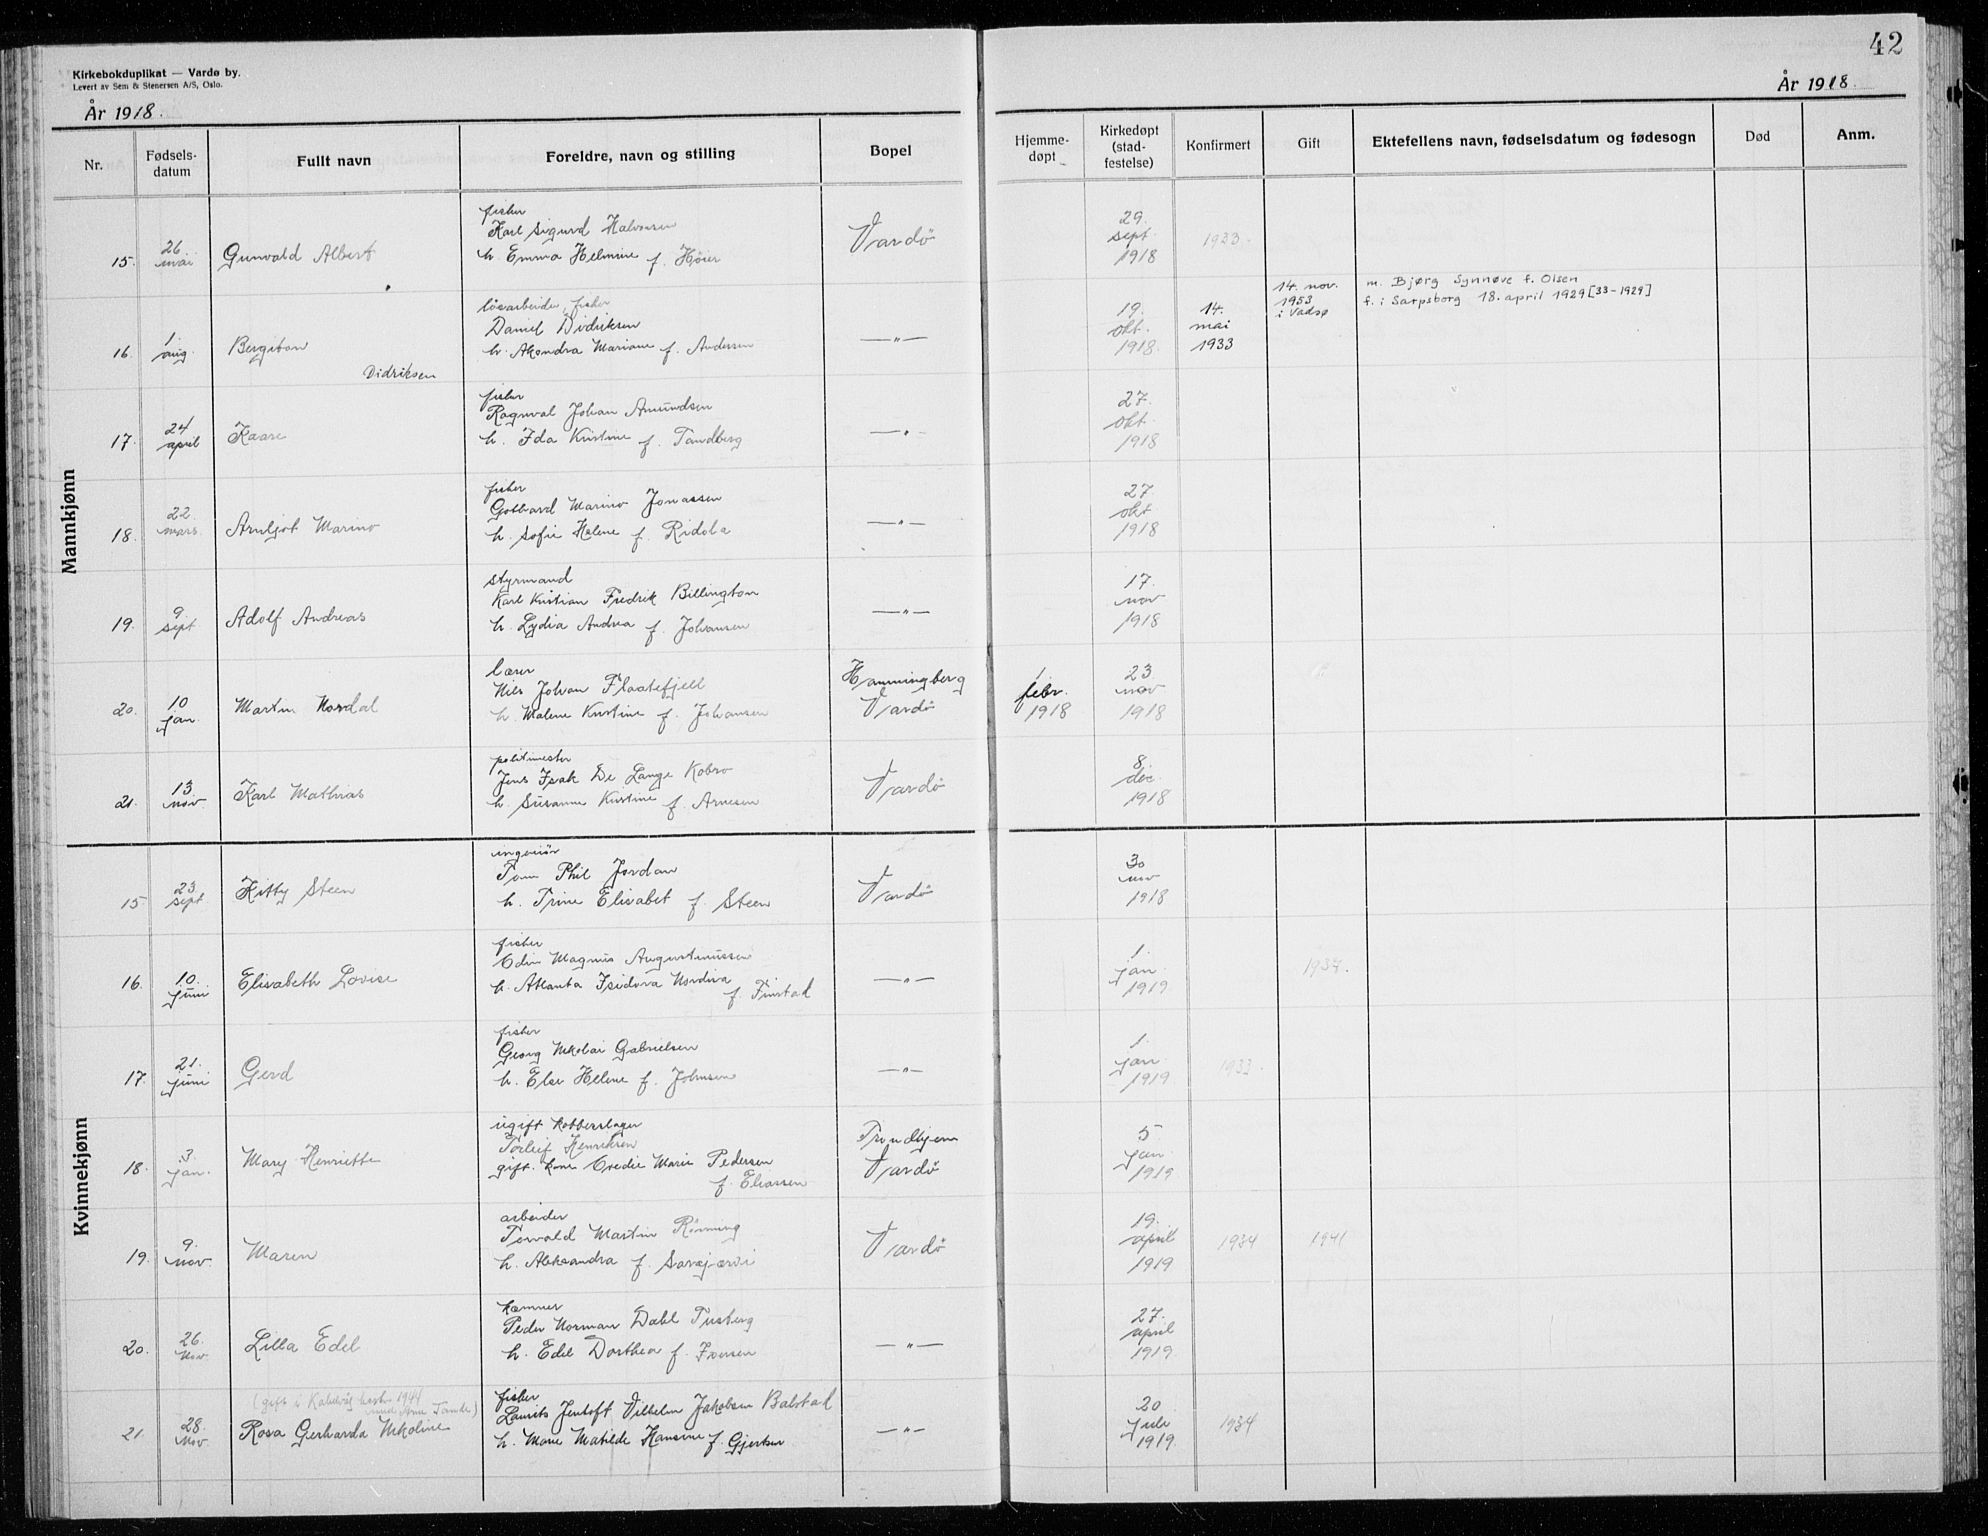 42
Kirkebokduplikat — Vardø by.
Levert av Sem & Stenersen A/S, Oslo.
År 1918.
År 1918.
Nr.
Fødsels-
datum
Fullt navn
Foreldre, navn og stilling
Bopel
Hjemme-
døpt
Kirkedøpt
(stad-
festelse)
Konfirmert
Gift
Ektefellens navn, fødselsdatum og fødesogn
Død
Anm.
Mannkjønn
15.
26.
mai
Gunvald Albert
fisker
Karl Sigurd Halvorsen
h. Emma Helmine f. Høier
Vardö
29.
sept.
1918
1933.
16.
1.
aug.
Bergiton
Didriksen
løsarbeider, fisker
Daniel Didriksen
h. Akondra Mariane f. Andersen
—"—
19.
okt.
1918.
14.
mai
1933
14. nov.
1953
i Vadsø
m. Bjørg Synnøve f. Olsen
f. i Sarpsborg 18. april 1929 [33-1929]
17.
24
april
Kaare
fisker
Ragnval Johan Amundsen
h. Ida Kristine f. Tandberg
—"—
27.
okt.
1918
18.
22.
mars.
Arnljot Marino
fisker
Gothard Marino Jonassen
h. Sofie Helene f. Ridola
—"—
27.
okt
1918
19.
9.
sept
Adolf Andreas
styrmand
Karl Kristian Fredrik Billington
h. Lydia Andrea f. Johansen
—"—
17.
nov
1918
20.
10
jan.
Martin Nordal
lærer
Nils Johan Flaatefjell
h. Malene Kristine f. Johansen
Hamningberg
Vardö
1
febr.
1918
23
nov
1918
21.
13.
nov
Karl Mathias
politimester
Jens Isak De Lange Kobro
h. Susanne Kristine f. Arnesen
Vardö
8.
dec.
1918
Kvinnekjønn
15
23.
sept
Kitty Steen
ingeniør
Tom Phil Jordan
h. Trine Elisabet f. Steen
Vardö
30
nov
1918
16.
10.
juni
Elisabeth Lovise
fisker
Edin Magnus Augustinussen
h. Atlanta Isidora Nordina
f. Finstad
—"—
1.
jan.
1919
1937.
17.
21.
juni
Gerd
fisker
Georg Nikolai Gabrielsen
h. Else Helene f. Johnsen
—"—
1.
jan.
1919
1933.
18.
3.
jan.
Mary Henriette
ugift kobberslager
Torleif Henriksen
gift. kone Evedie Marie Pedersen
f. Eliassen
Trondhjem
Vardö
5.
jan.
1919
19.
9.
nov
Maren
arbeider
Torvald Martin Rönning
h. Aleksandra f. Savæjærvi
Vardö
19.
april
1919
1934
1941
20.
26.
Nov
Lilla Edel
kæmner
Peder Norman Dahl Tusberg
h. Edel Dorthea f. Iversen
—"—
27.
april
1919.
21.
28.
Nov.
(gift i Kalvåg høsten 1944
med Arne Tande)
Rosa Gerharda Nikoline
fisker
Laurits Jentoft Vilhelm Jakobsen Balstad
h. Marie Matilde Hansine f. Gjertsen
—"—
20
juli
1919.
1934